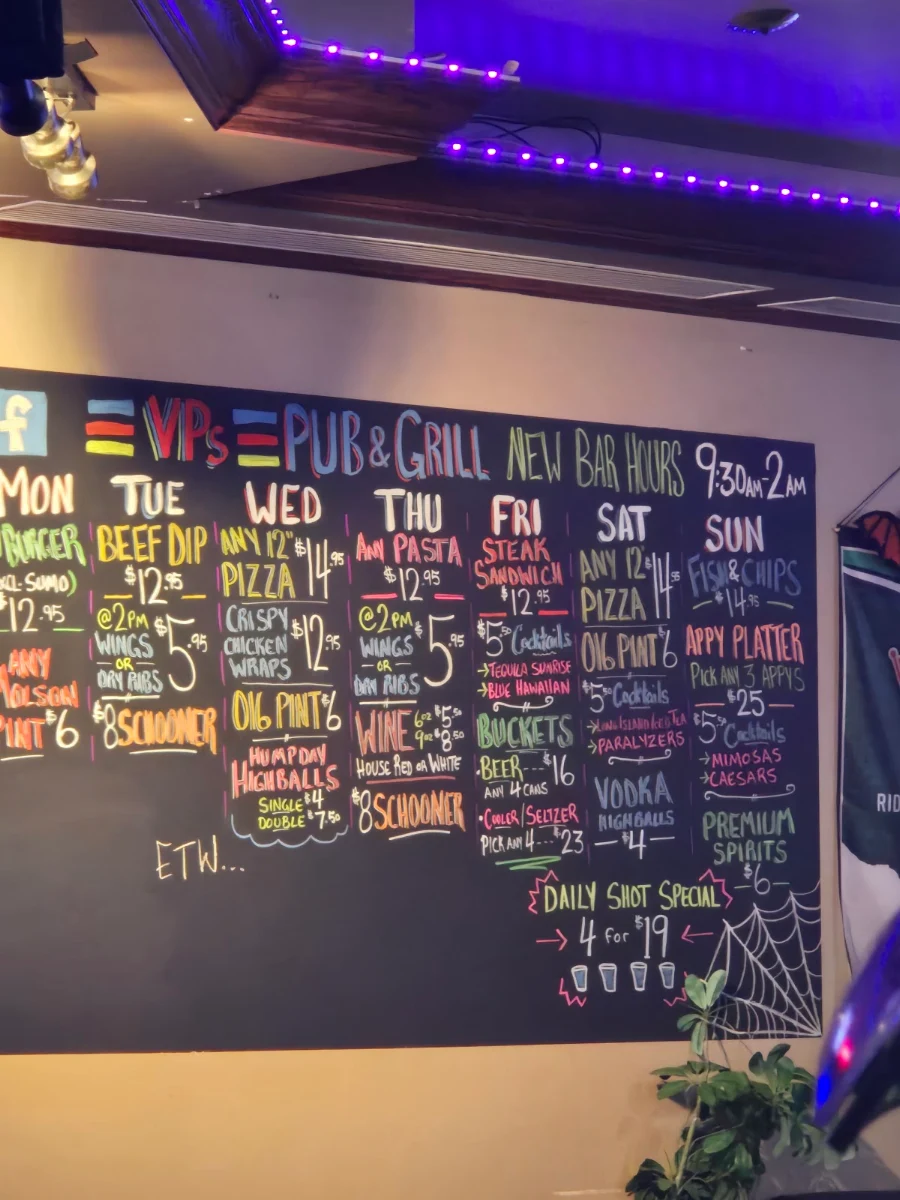 f VPs PUB & GRILL NEW BAR HOURS 9:30AM-2AM
MON
BURGER
SUMO)
$12.95
ANY
MOLSON
PINT $6
TUE
BEEF DIP
$12.95
@2PM
WINGS
OR
DRY RIBS
$5.95
$8 SCHOONER
WED
ANY 12"
PIZZA
$14.95
CRISPY
CHICKEN
WRAPS
$12.95
OV6 PINT $6
HUMPDAY
HIGHBALLS
SINGLE $4
DOUBLE $7.50
THU
ANY PASTA
$12.95
@2PM
WINGS
OR
DRY RIBS
$5.95
WINE 6oz $5.50
9oz $8.50
HOUSE RED OR WHITE
$8 SCHOONER
FRI
STEAK
SANDWICH
$12.95
$5.50 Cocktails
→TEQUILA SUNRISE
→BLUE HAWAIIAN
BUCKETS
·BEER---$16
ANY 4 CANS
·COOLER/SELTZER
PICK ANY 4---$23
SAT
ANY 12"
PIZZA
$14.95
OV6 PINT $6
$5.50 Cocktails
→LONG ISLAND ICED TEA
→PARALYZERS
VODKA
HIGHBALLS
-$4-
SUN
FISH & CHIPS
-$14.95-
APPY PLATTER
PICK ANY 3 APPYS
-$25-
$5.50 Cocktails
→MIMOSAS
→CAESARS
PREMIUM
SPIRITS
-$6-
ETW...
DAILY SHOT SPECIAL
→ 4 for $19 ←
RID